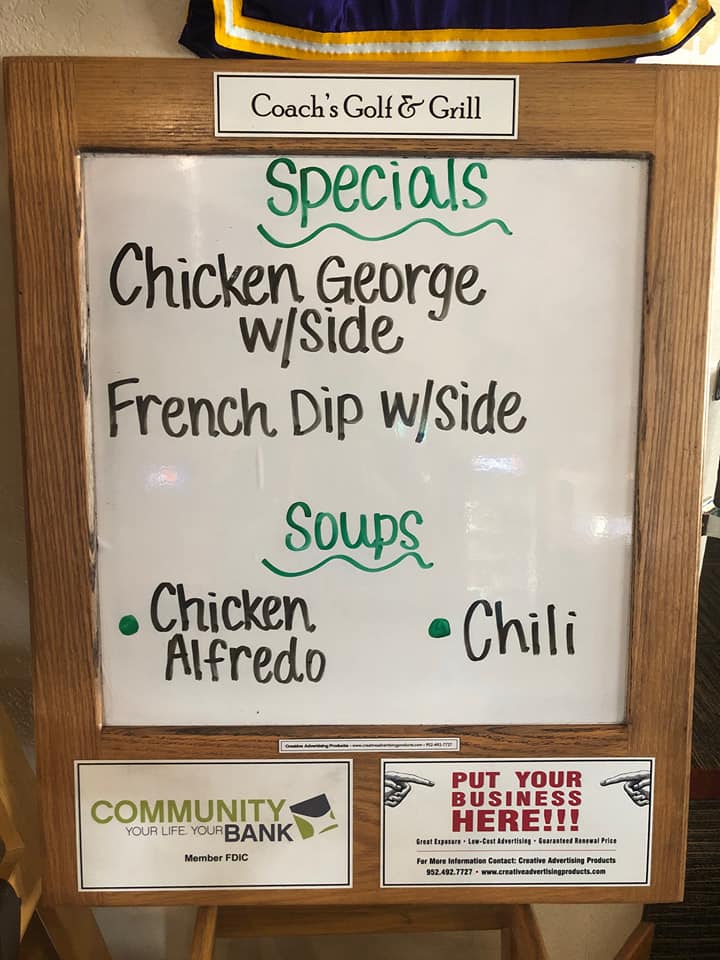 Coach's Golf & Grill
Specials
Chicken George
w/side
French Dip w/side
Soups
• Chicken
Alfredo
• Chili
Creative Advertising Products - www.creativeadvertisingproducts.com - 952-492-7727
COMMUNITY
YOUR LIFE. YOUR BANK
Member FDIC
PUT YOUR
BUSINESS
HERE!!!
Great Exposure • Low-Cost Advertising • Guaranteed Renewal Price
For More Information Contact: Creative Advertising Products
952.492.7727 • www.creativeadvertisingproducts.com